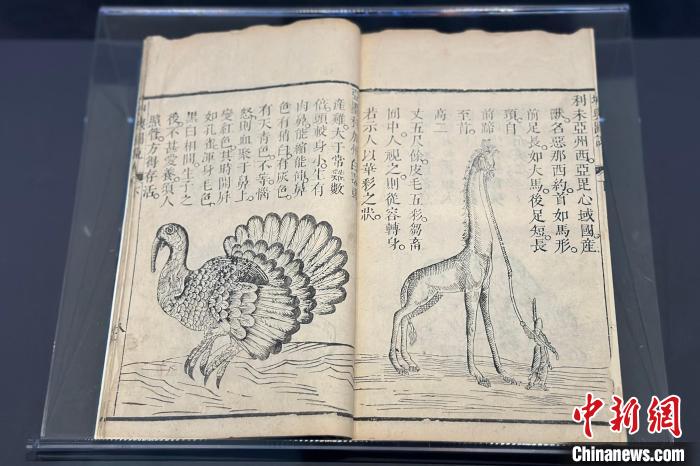 利未亞州西亞毘心域國產
獸名惡那西約。首如馬形。
前足長如大馬。後足短。長
項。自
前蹄
至首
高二
丈五尺餘。皮毛五彩。芻畜
囿中。人視之則從容轉身。
若示人以華彩之狀。
產雞。大于常雞數
倍。頭較身小。生有
肉鼻。能縮能伸。鼻
色有稍白。有灰色。
有天青色不等。惱
怒則血聚于鼻上。
變紅色。其時開屏
如孔雀。渾身毛色
黑白相間。生子之
後。不甚愛養。須人
照管。方得存活。
中新網
Chinanews.com